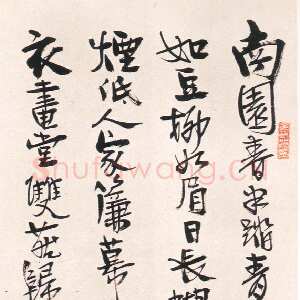 南園春半蹋青
如豆柳如眉日長蝴
煙低人家簾幕
衣畫堂雙燕歸
Shufawang.cn